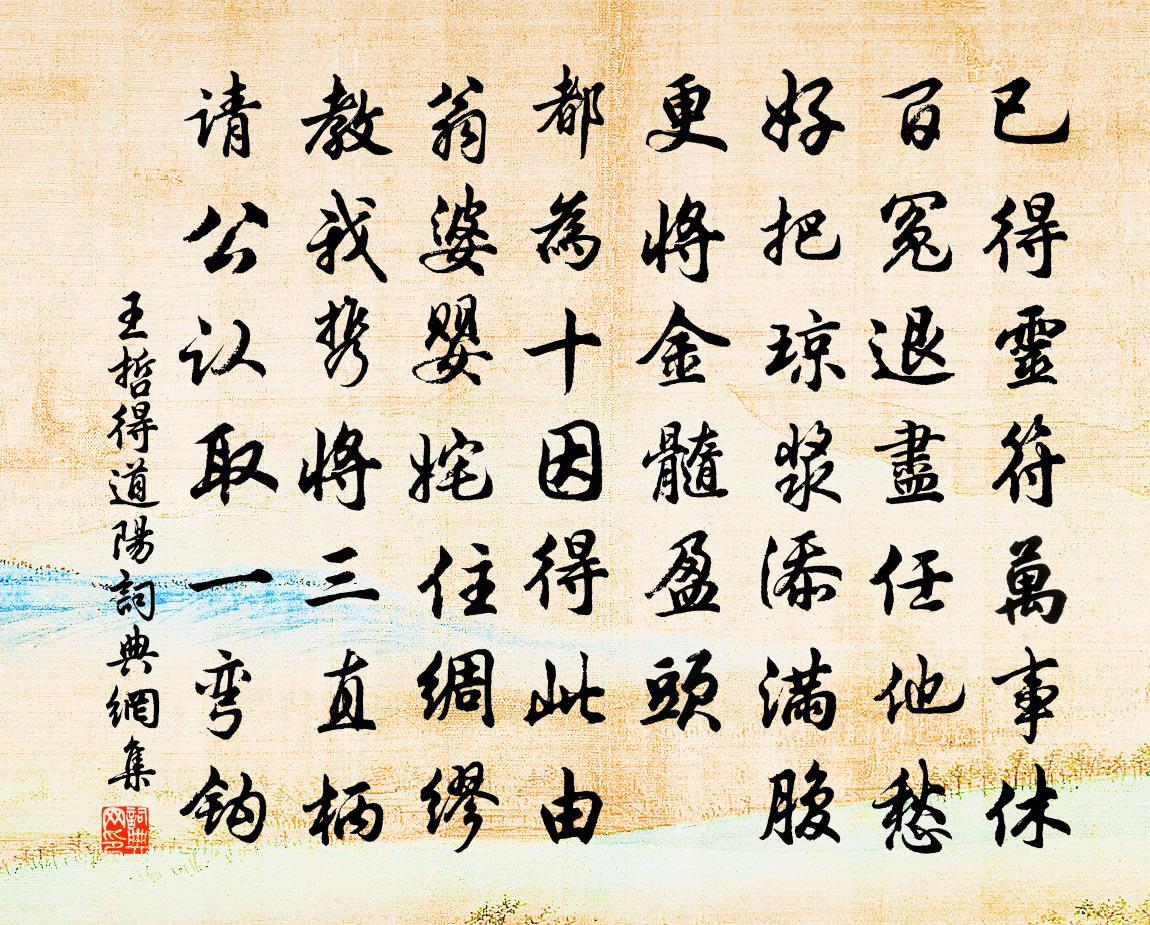 已得靈符萬事休
百冤退盡任他愁
好把琼漿添滿腹
更將金髓盈頭
都為十因得此由
翁婆嬰姹住綢繆
教我携將三直柄
请公认取一弯钩
王哲得道陽詞典網集
詞典网印